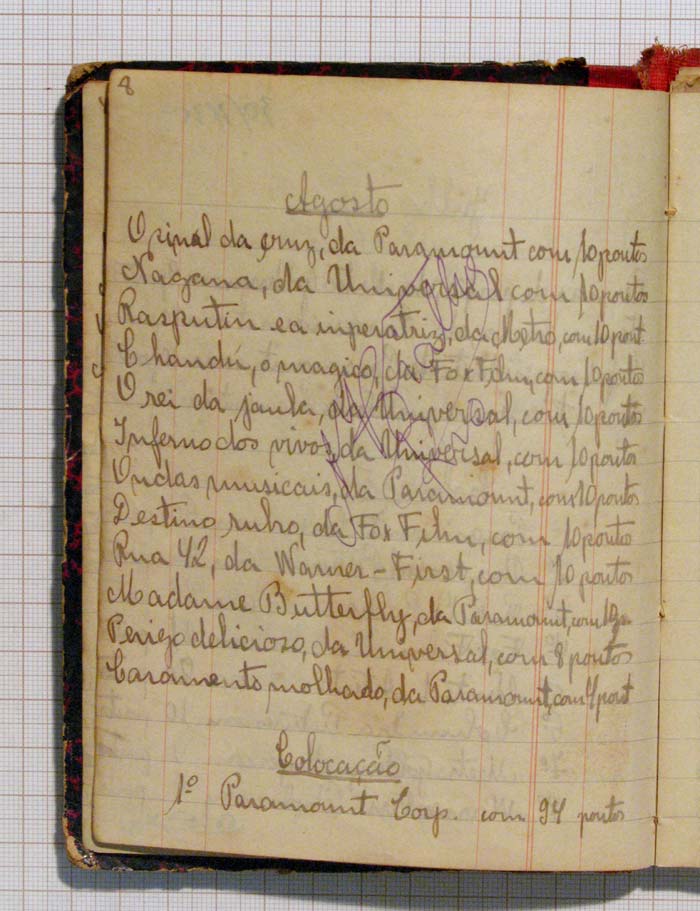 8
Agosto
O sinal da cruz, da Paramount com 10 pontos
Nagana, da Universal com 10 pontos
Rasputin e a inperatriz, da Metro, com 10 pont
Chandú, o magico, da Fox Film, com 10 pontos
O rei da jaula, da Universal, com 10 pontos
Inferno dos vivos, da Universal, com 10 pontos
Ondas musicais, da Paramount, com 10 pontos
Destino rubro, da Fox Film, com 10 pontos
Rua 42, da Warner-First, com 10 pontos
Madame Butterfly, da Paramount, com 10 p.
Perigo delicioso, da Universal, com 8 pontos
Casamento molhado, da Paramount, com 4 pont
Colocação
1º Paramount Corp. com 94 pontos